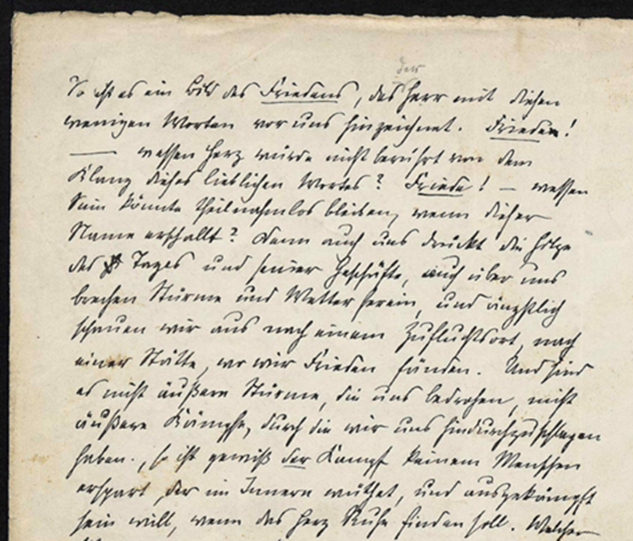 der
So ist es ein Bild des Friedens, das Herr mit diesen
wenigen Worten vor uns hinzeichnet. Frieden!
— wessen Herz würde nicht berührt von dem
Klang dieses lieblichen Wortes? Friede! — wessen
Sein könnte theilnahmlos bleiben, wenn dieser
Name erschallt? Denn auch uns drückt die Hitze
des Tages und seiner Geschäfte, auch über uns
brechen Stürme und Wetter herein, und ängstlich
schauen wir aus nach einem Zufluchtsort, nach
einer Stätte, wo wir Frieden fänden. Und sind
es nicht äußere Stürme, die uns bedrohen, nicht
äußere Kämpfe, durch die wir uns hindurchzuschlagen
haben, so ist gewiß der Kampf keinem Menschen
erspart der im Innern wüthet, und ausgekämpft
sein will, wenn das Herz Ruhe finden soll. Welcher